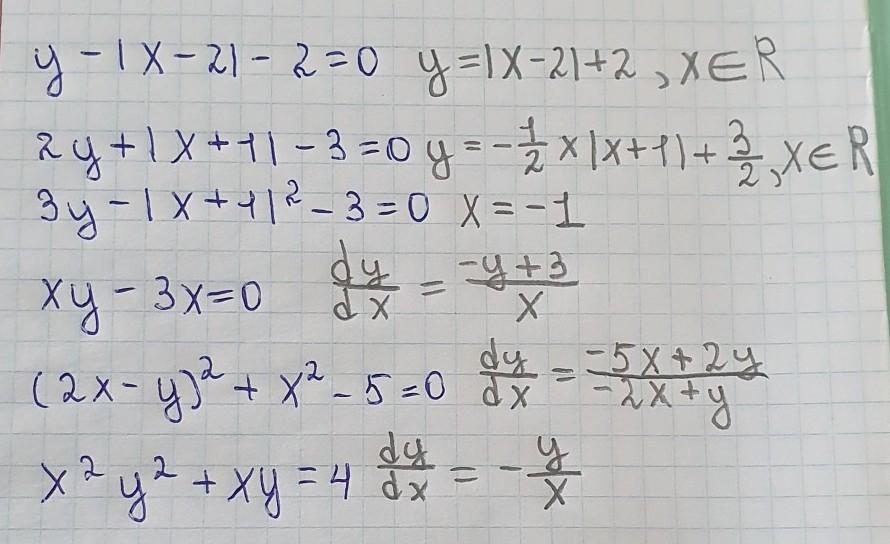 y - |x - 2| - 2 = 0 y = |x - 2| + 2, x ∈ R
2y + |x + 1| - 3 = 0 y = -1/2 x |x + 1| + 3/2, x ∈ R
3y - |x + 1|² - 3 = 0 x = -1
xy - 3x = 0 dy/dx = (-y + 3)/x
(2x - y)² + x² - 5 = 0 dy/dx = (-5x + 2y)/(-2x + y)
x²y² + xy = 4 dy/dx = -y/x